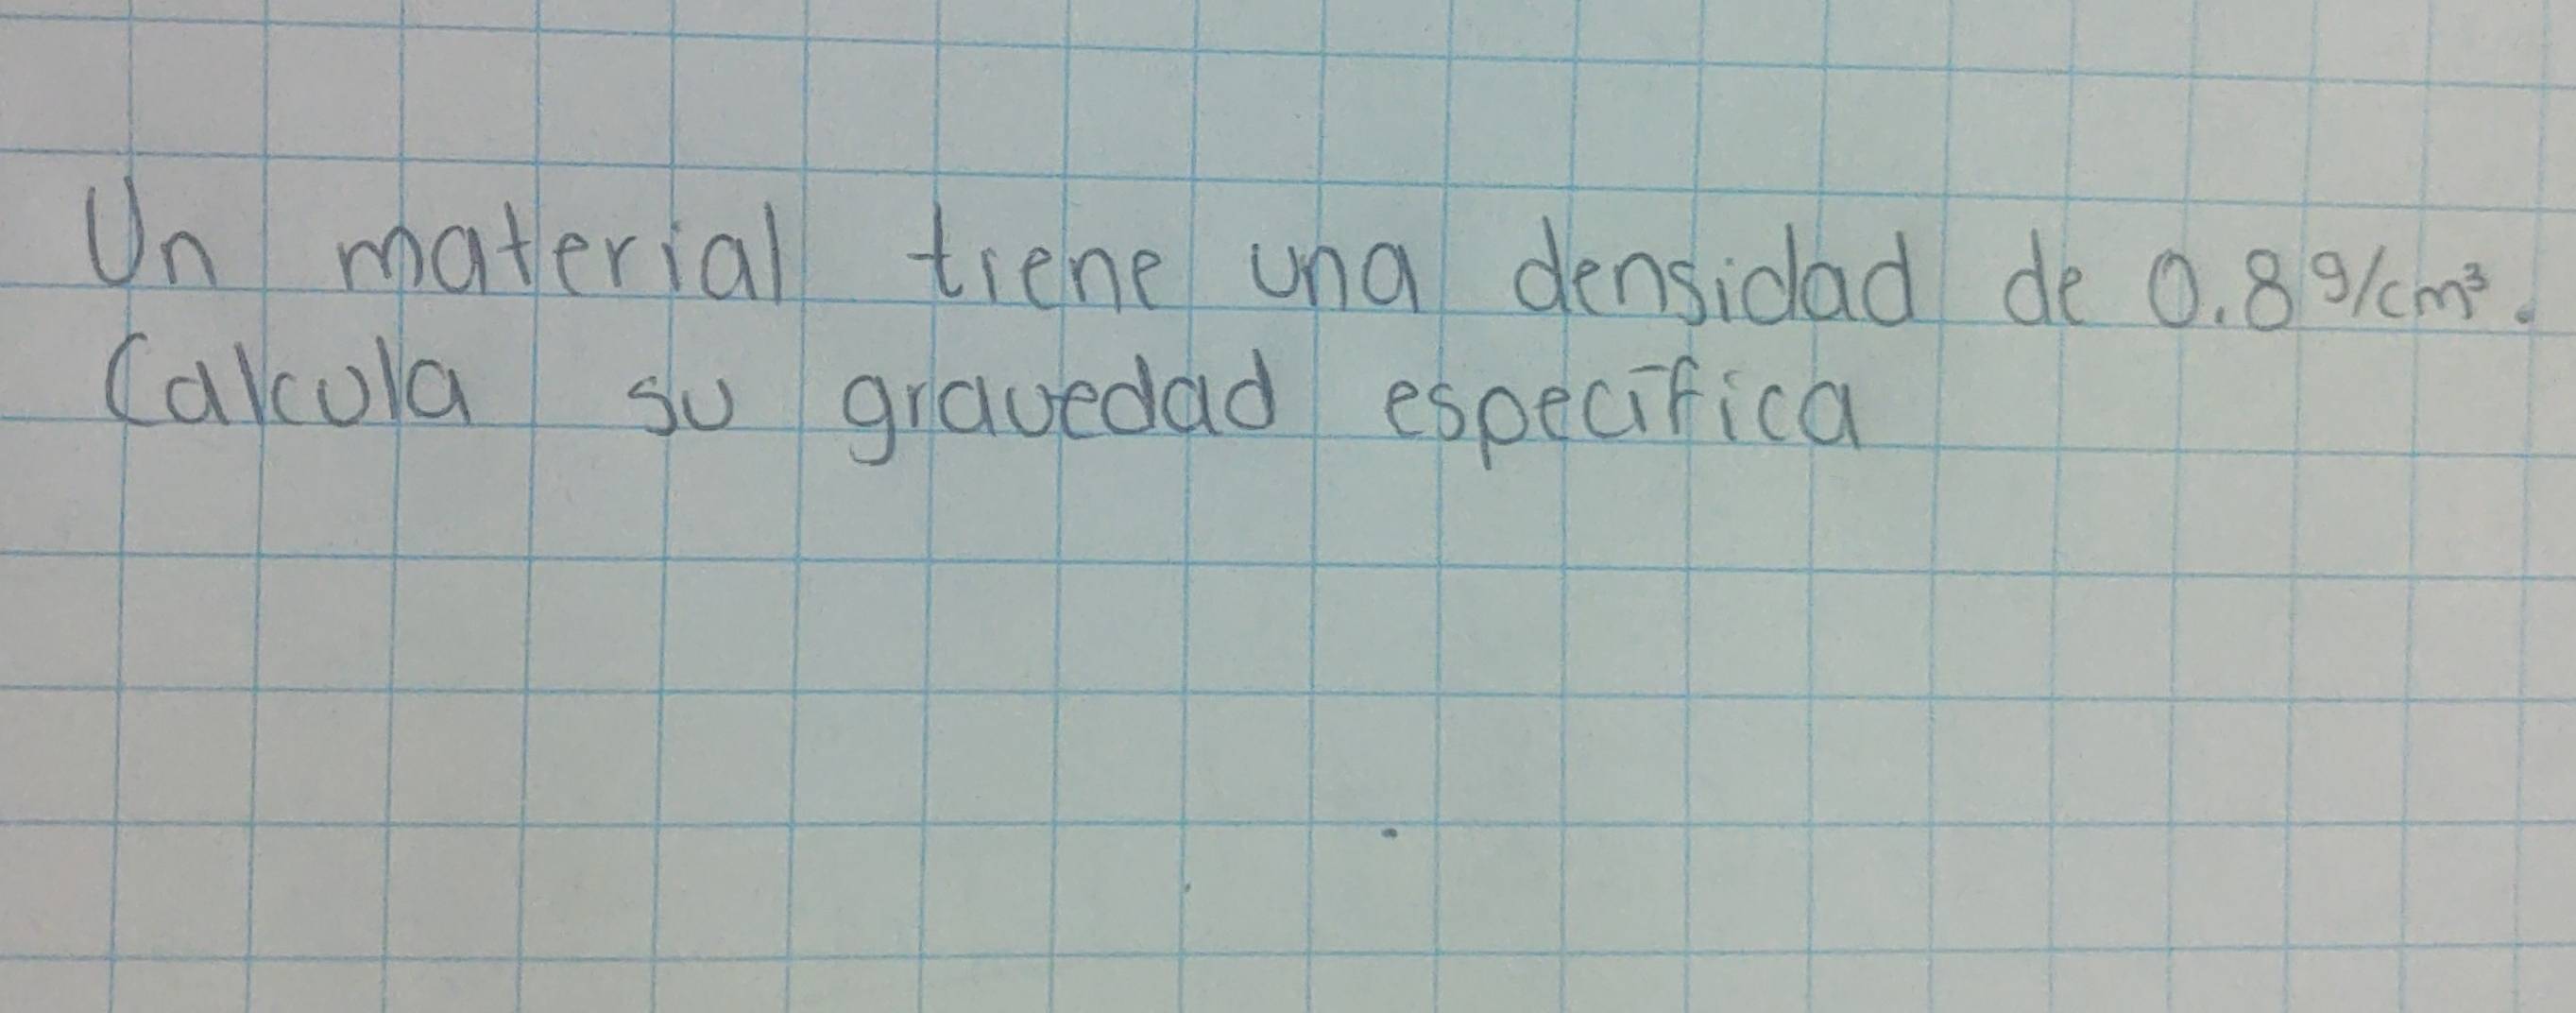 Un material tiene una densidad de 0.8 g/cm³.
Calcula su gravedad específica